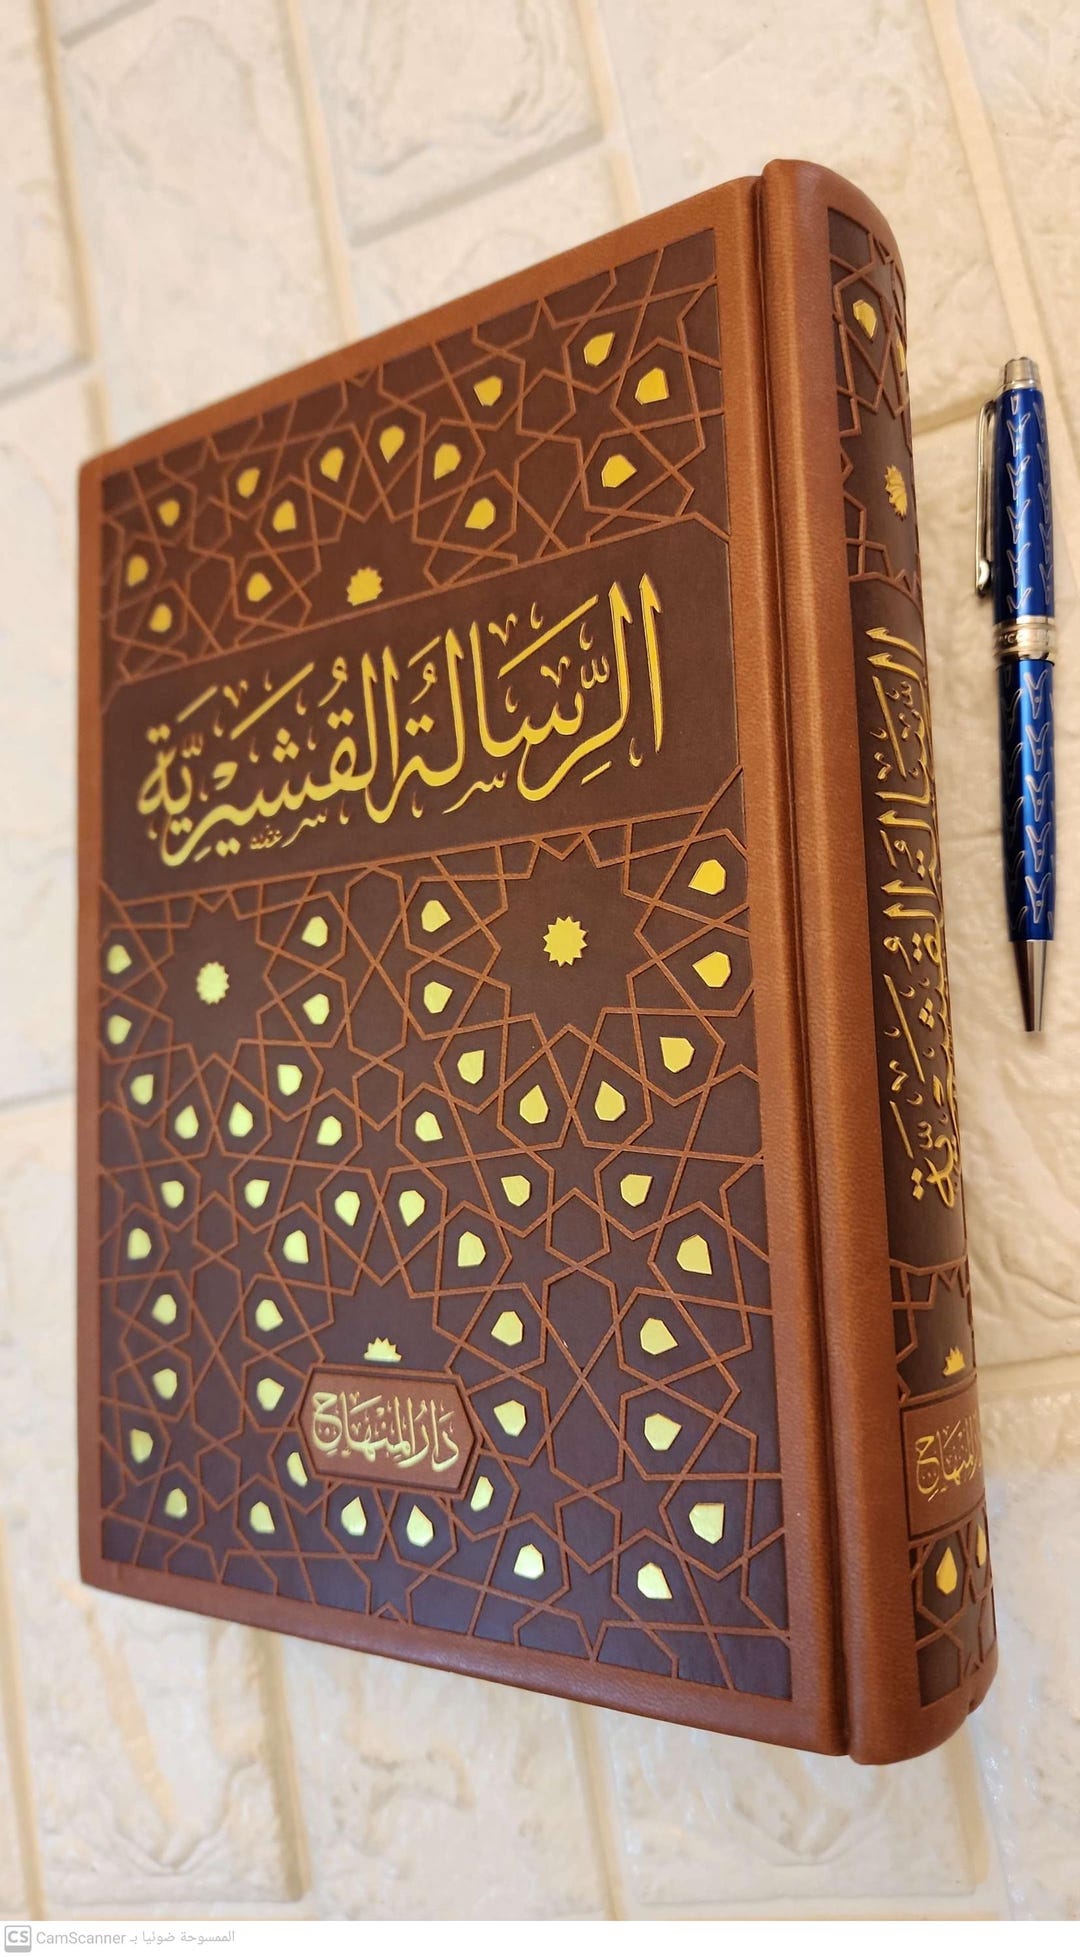 الرِّسَالَةُ القُشَيْرِيَّة
دَارُ المِنْهَاج
الرسالة القشيرية
المنهاج
CS CamScanner الممسوحة ضوئيا بـ